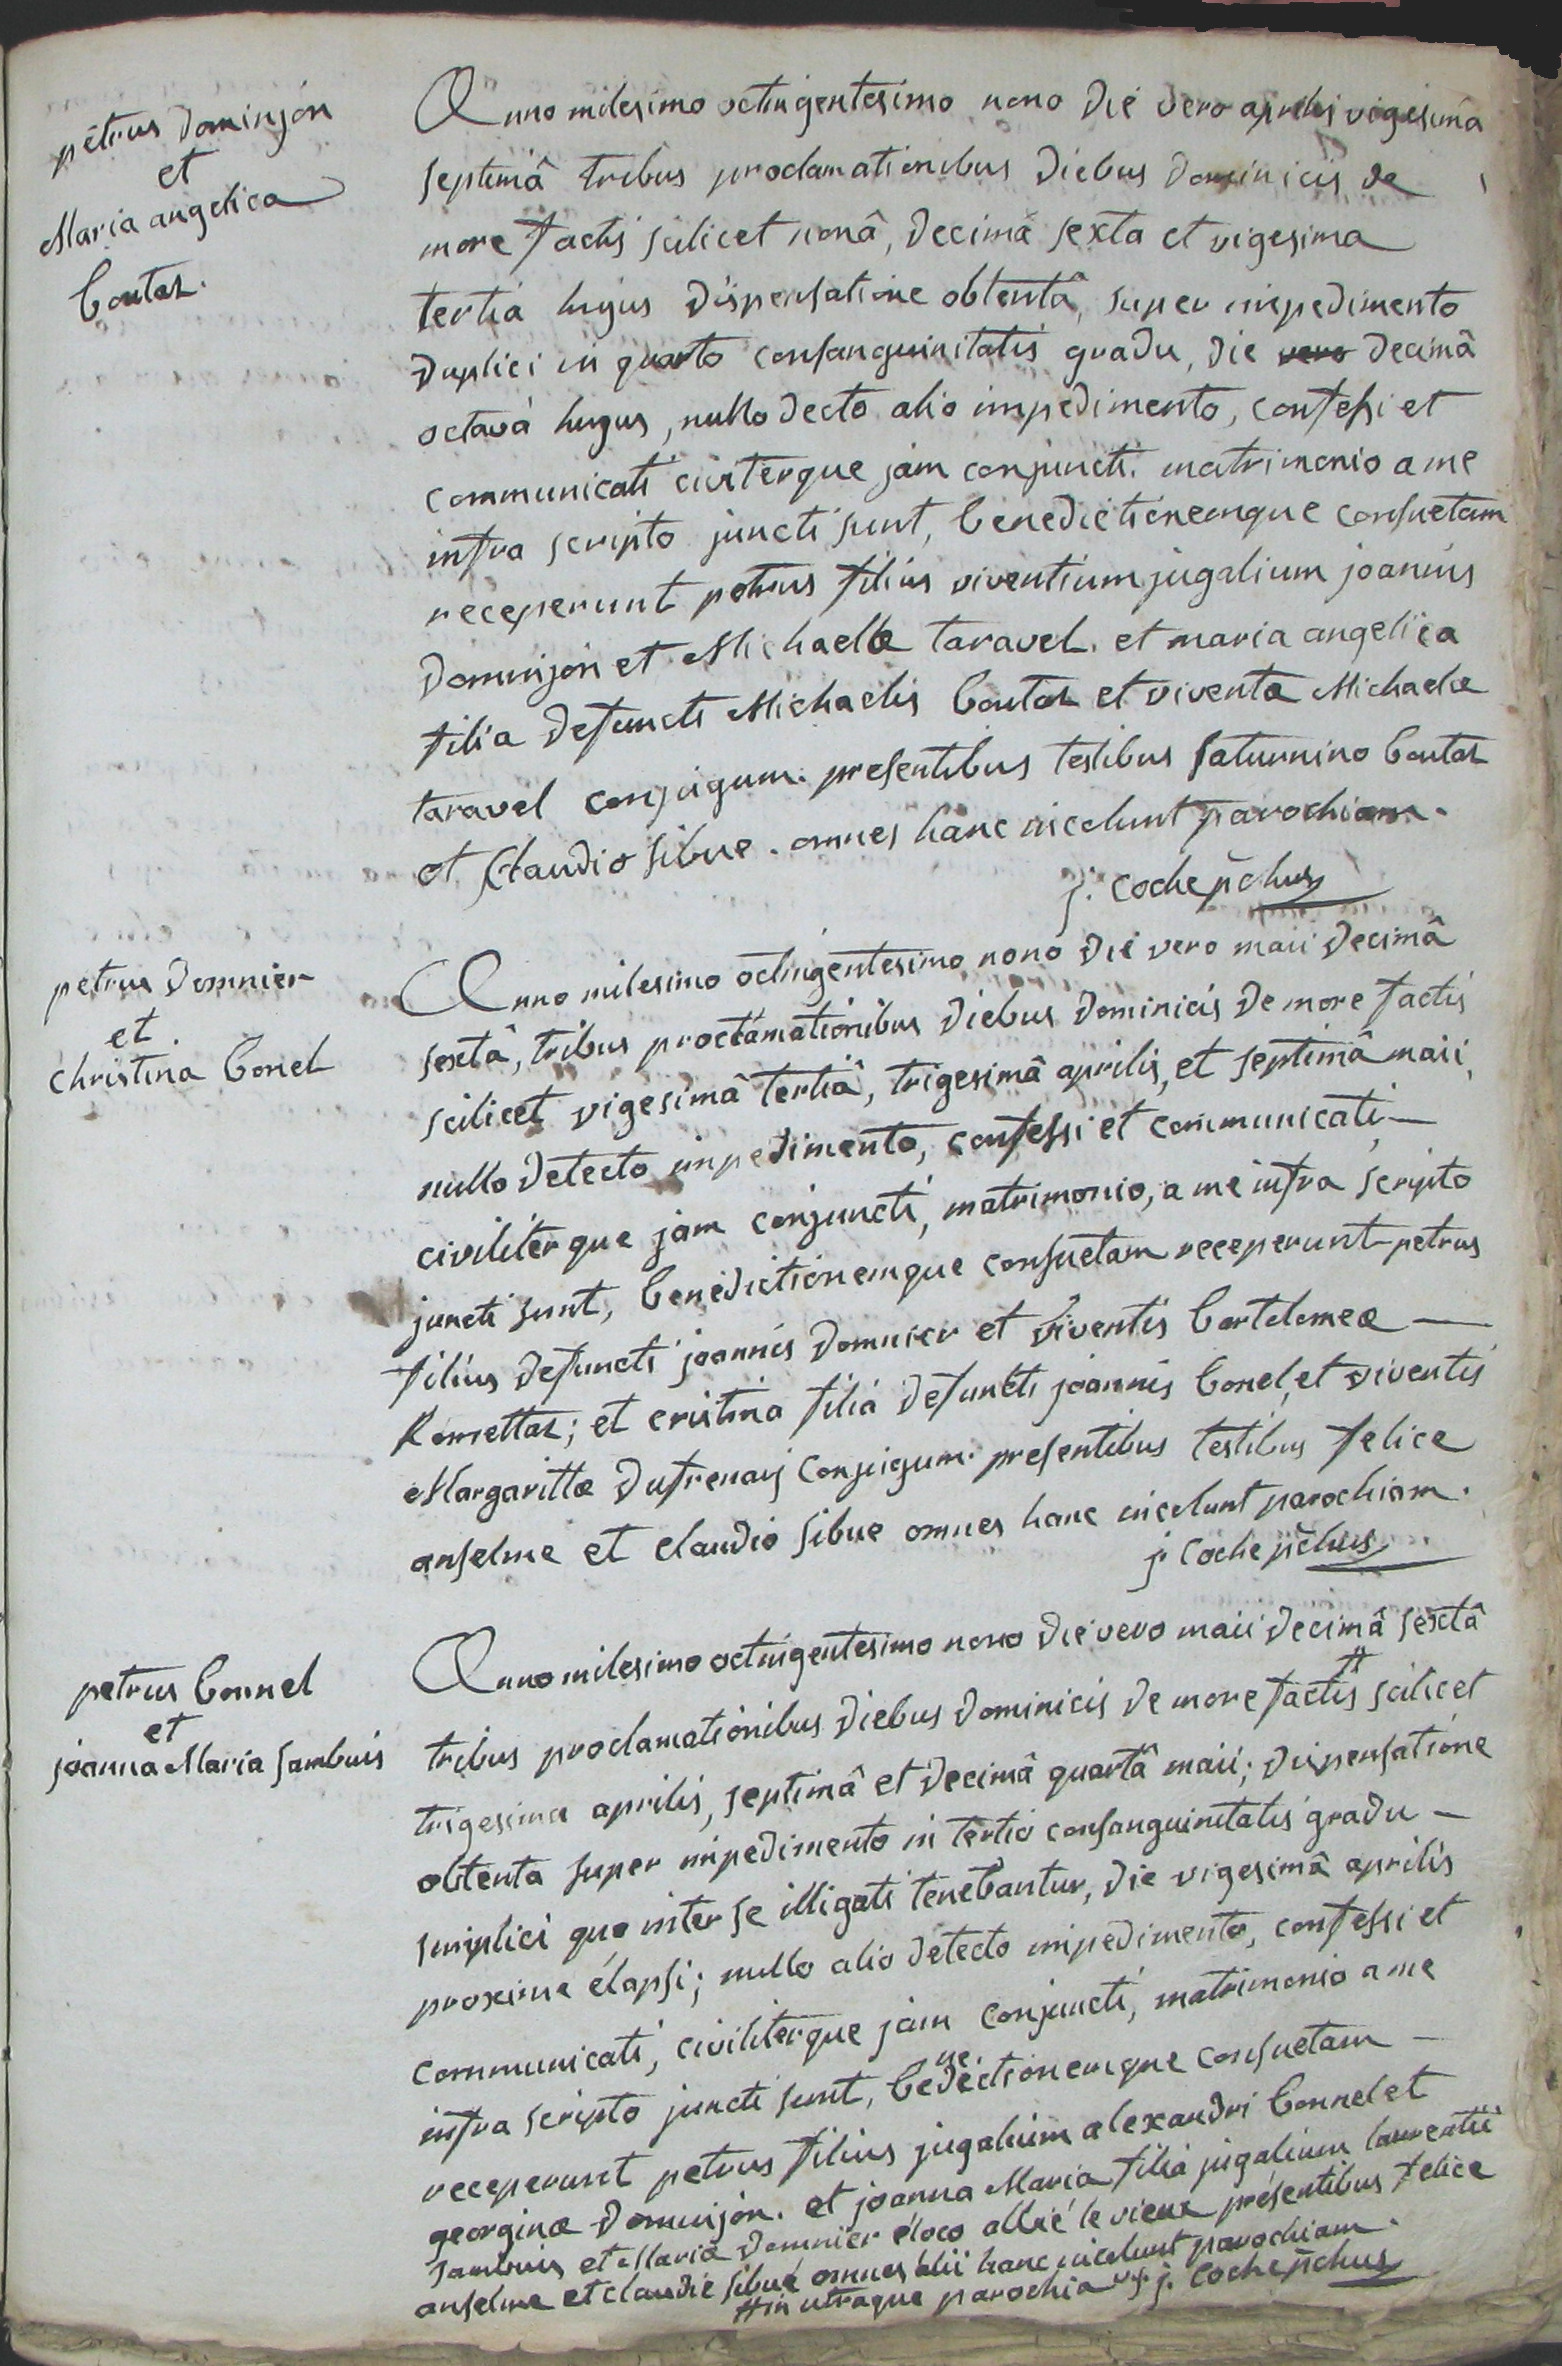 petrus dominjon
et
Maria angelica
boutaz.
Anno milesimo octingentesimo nono die vero aprilis vigesima
septimâ tribus proclamationibus diebus dominicis de
more factis scilicet nonâ, decimâ sexta et vigesima
tertiâ hujus dispensatione obtentâ, super impedimento
duplici in quarto consanguinitatis gradu, die vero decimâ
octavâ hujus, nullo decto alio impedimento, confessi et
communicati civiterque jam conjuncti matrimonio a me
infra scripto juncti sunt, benedictionemque consuetam
receperunt petrus filius viventium jugalium joannis
dominjon et Michaellæ taravel. et maria angelica
filia defuncti Michaelis boutaz et viventæ Michaelæ
taravel conjugum. presentibus testibus saturnino boutaz
et Claudio sibue. omnes hanc incolunt parochiam.
j. coche pchus
petrus domnier
et
christina bonel
Anno milesimo octingentesimo nono die vero maii decimâ
sextâ, tribus proclamationibus diebus dominicis de more factis
scilicet vigesimâ tertiâ, trigesimâ aprilis, et septimâ maii,
nullo detecto impedimento, confessi et communicati
civiliterque jam conjuncti, matrimonio, a me infra scripto
juncti sunt, benedictionemque consuetam receperunt petrus
filius defuncti joannis domnier et viventis bartolomeæ
Romettaz; et cristina filia defuncti joannis bonel, et viventis
Margarittæ dufrenay conjugum. presentibus testibus felice
anselme et claudio sibue omnes hanc incolunt parochiam.
j. coche pchus
petrus bonnel
et
joanna Maria sambuis
Anno milesimo octingentesimo nono die vero maii decimâ sextâ
tribus proclamationibus diebus dominicis de more factis # scilicet
trigesima aprilis, septimâ et decimâ quartâ maii; dispensatione
obtenta super impedimento in tertio consanguinitatis gradu
simplici quo inter se illigati tenebantur, die vigesimâ aprilis
proxime élapsi; nullo alio detecto impedimento, confessi et
communicati, civiliterque jam conjuncti, matrimonio a me
infra scripto juncti sunt, benedectionemque consuetam
receperunt petrus filius jugalium alexandri bonnel et
georginæ dominjon. et joanna Maria filia jugalium laurentii
sambuis et Maria domnier éloco albié le vieux présentibus felice
anselme et claudie sibué omnes alii hanc incolunt parochiam.
# in utraque parochia j. coche pchus